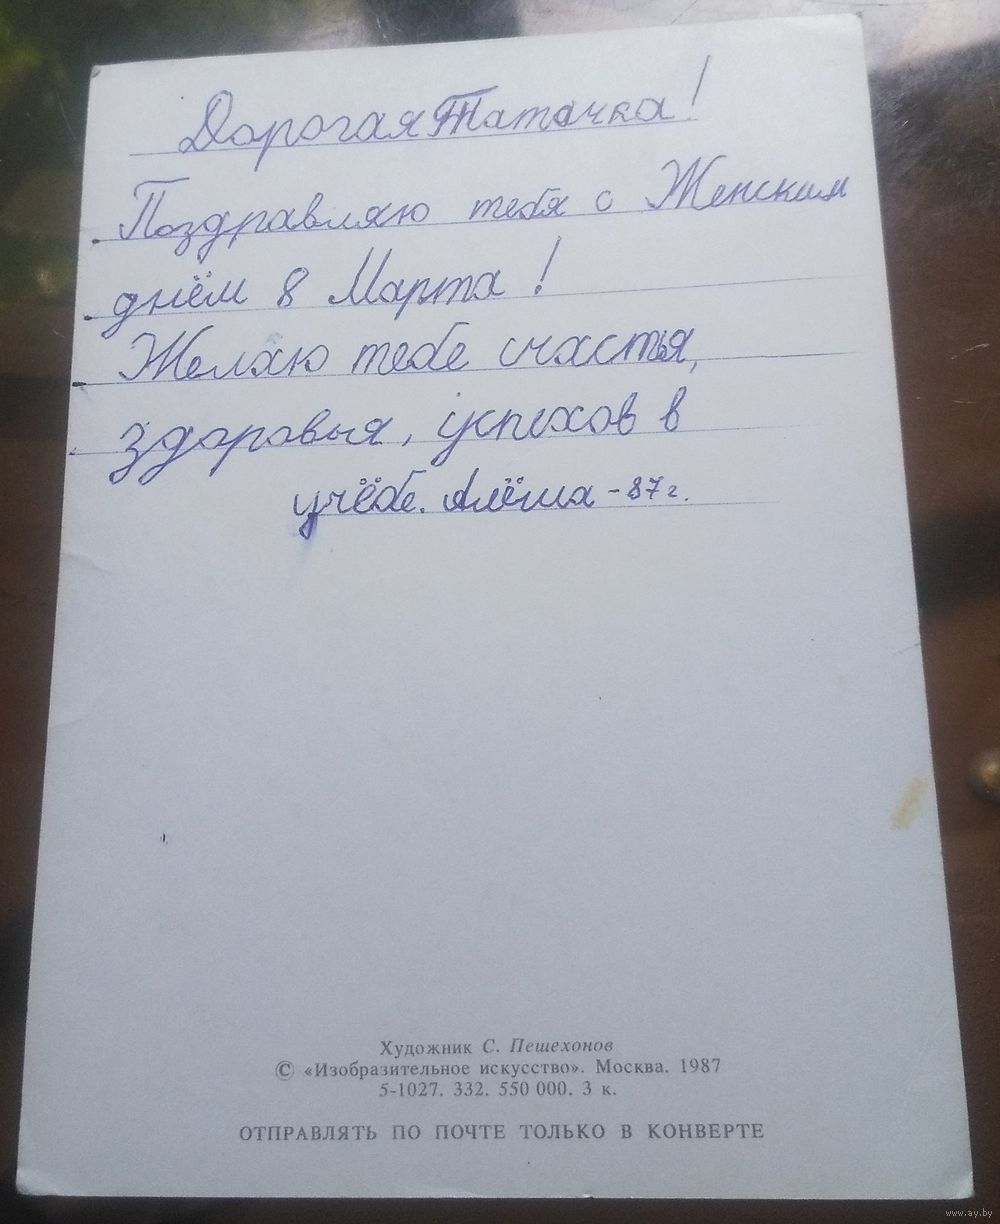 Дорогая Таточка!
Поздравляю тебя с Женским
днём 8 Марта!
Желаю тебе счастья,
здоровья, успехов в
учёбе. Алёша - 87 г.
Художник С. Пешехонов
© «Изобразительное искусство». Москва. 1987
5-1027. 332. 550 000. 3 к.
ОТПРАВЛЯТЬ ПО ПОЧТЕ ТОЛЬКО В КОНВЕРТЕ
www.ay.by